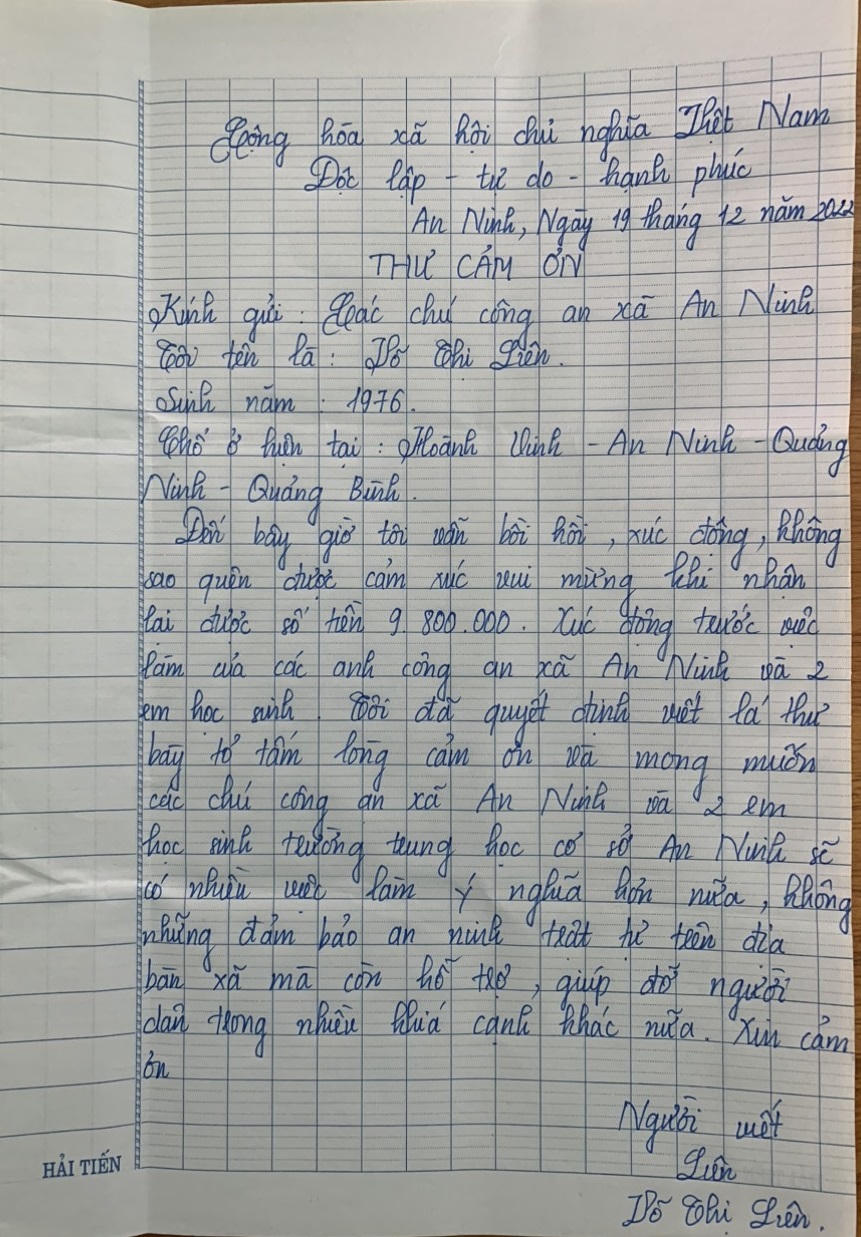 Cộng hòa xã hội chủ nghĩa Việt Nam
Độc lập - tự do - hạnh phúc
An Ninh, Ngày 19 tháng 12 năm 2022
THƯ CẢM ƠN
Kính gửi : Các chú công an xã An Ninh
Tôi tên là : Võ Thị Liên.
Sinh năm : 1976.
Chỗ ở hiện tại : Hoành Vinh - An Ninh - Quảng
Ninh - Quảng Bình.
Đến bây giờ tôi vẫn bồi hồi, xúc động, không
sao quên được cảm xúc vui mừng khi nhận
lại được số tiền 9.800.000. Xúc động trước việc
làm của các anh công an xã An Ninh và 2
em học sinh. Tôi đã quyết định viết lá thư
bày tỏ tấm lòng cảm ơn và mong muốn
các chú công an xã An Ninh và 2 em
học sinh trường trung học cơ sở An Ninh sẽ
có nhiều việc làm ý nghĩa hơn nữa, không
những đảm bảo an ninh trật tự trên địa
bàn xã mà còn hỗ trợ, giúp đỡ người
dân trong nhiều khía cạnh khác nữa. Xin cảm
ơn
Người viết
Liên
Võ Thị Liên.
HẢI TIẾN